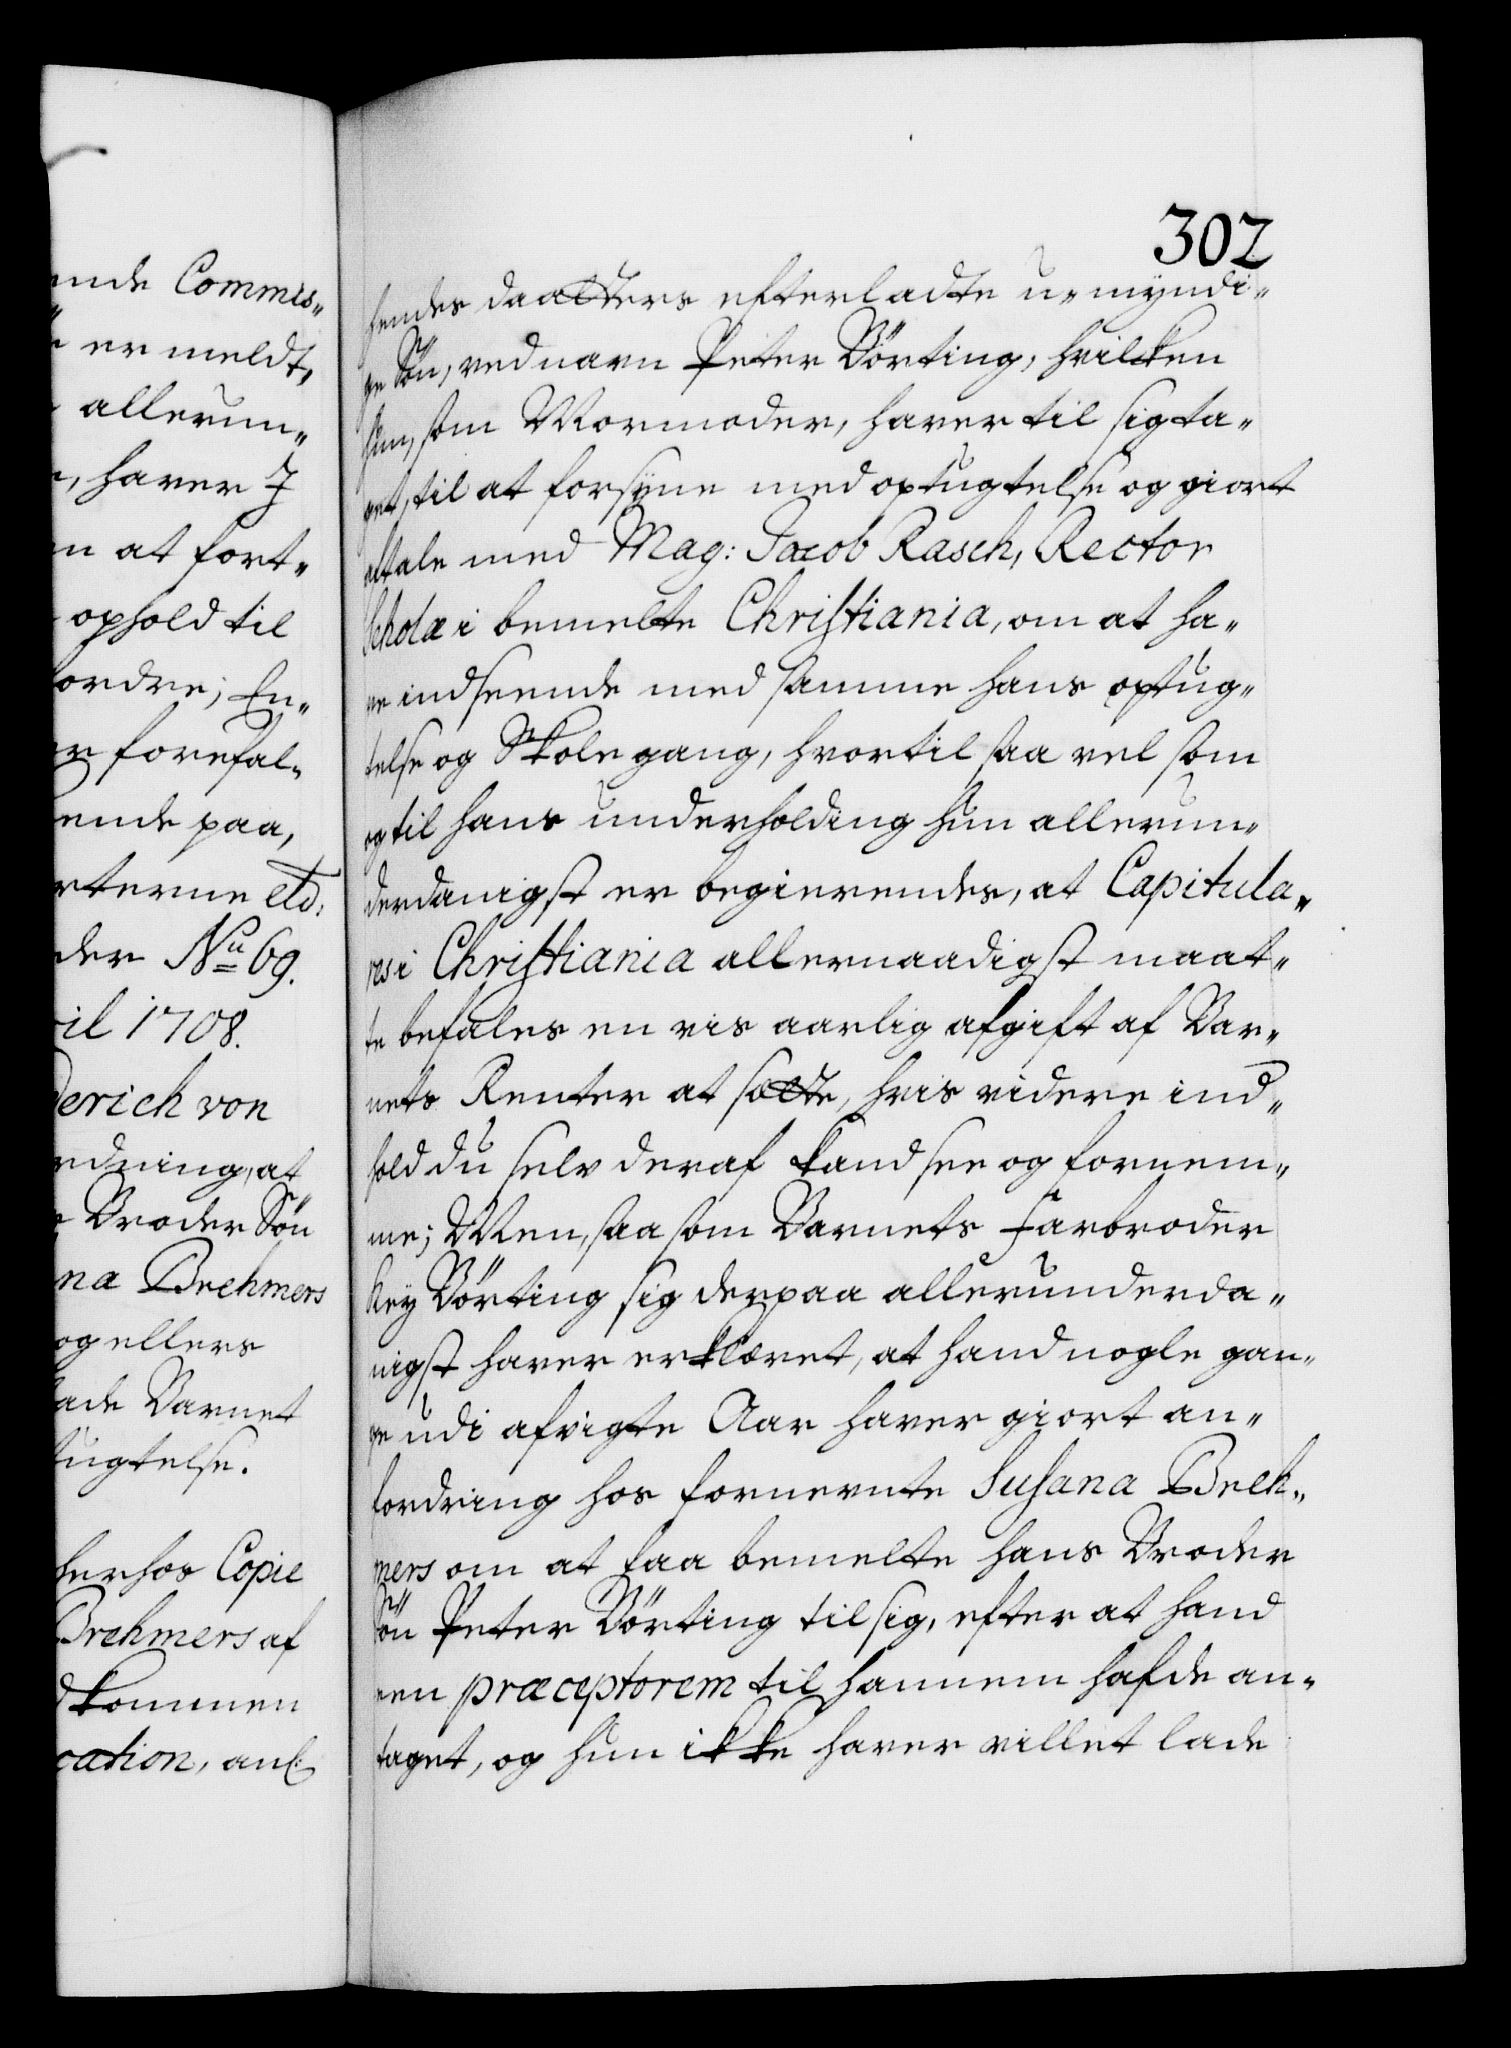 ende Commis„
er meldt,
allerun„
, haver I
en at fort„
ophold til
ordre; En„
er forefal„
ende paa,
rterne etc:
der No 69.
ril 1708.
derich von
rdning, at
Broder Søn
na Brehmers
og ellers
lade Barnet
tugtelse.
herhos Copie
Brehmers af
dkommen
cation, anl:
302
hendes daatters efterladte u-myndi„
ge Søn, ved navn Peter Börting, hvilken
hun, som Mormoder, haver til sig ta„
get, til at forsÿne med optugtelse og giort
aftale med Mag: Jacob Rasch, Rector
Scholæ i bemelte Christiania, om at ha„
ve indseende med samme hans optug„
telse og Skole gang, hvortil saa vel som
og til hans underholding hun allerun„
derdanigst er begierendes, at Capitula„
res i Christiania allernaadigst maat„
te befales en vis aarlig afgift af Bar„
nets Renter at sætte, hvis videre ind„
hold du selv deraf kand see og fornem„
me; Men, saa som Barnets Farbroder
Keÿ Börting sig derpaa allerunderda„
nigst haver erklæret, at hand nogle gan„
ge udi afvigte Aar haver giort an„
fordring hos fornevnte Susana Breh„
mers om at faa bemelte hans Broder
Søn Peter Börting til sig, efter at hand
een præceptorem til hannem hafde an„
taget, og hun ikke haver villet lade